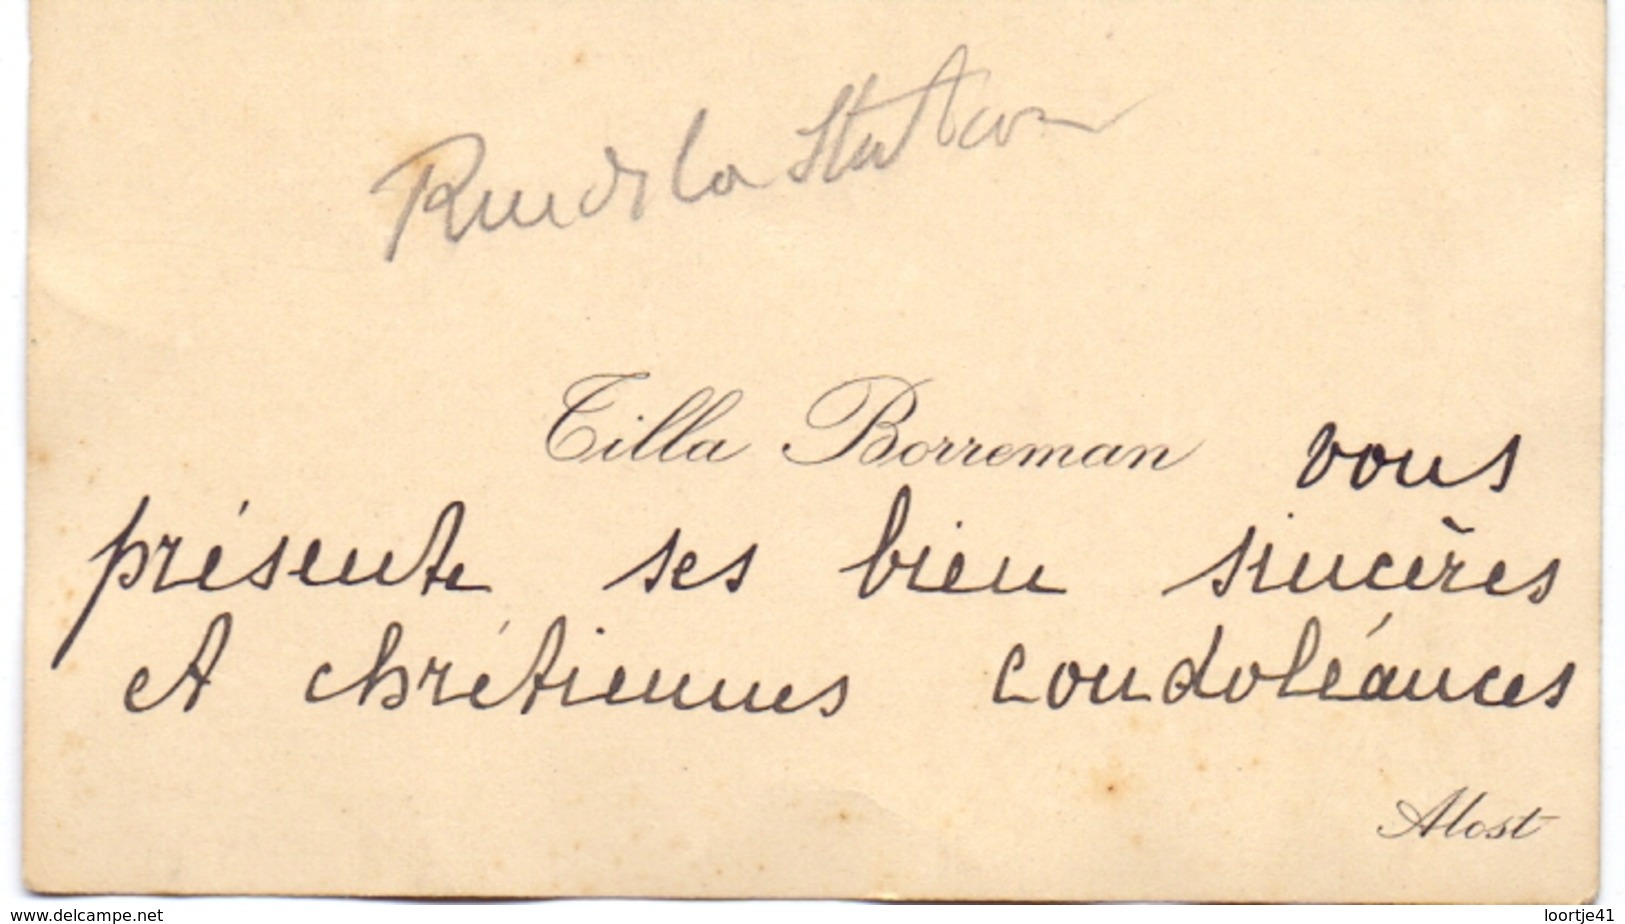 Rue de la Station
Tilla Borreman vous
présente ses bien sincères
et chrétiennes condoléances
Alost
www.delcampe.net
loortje41